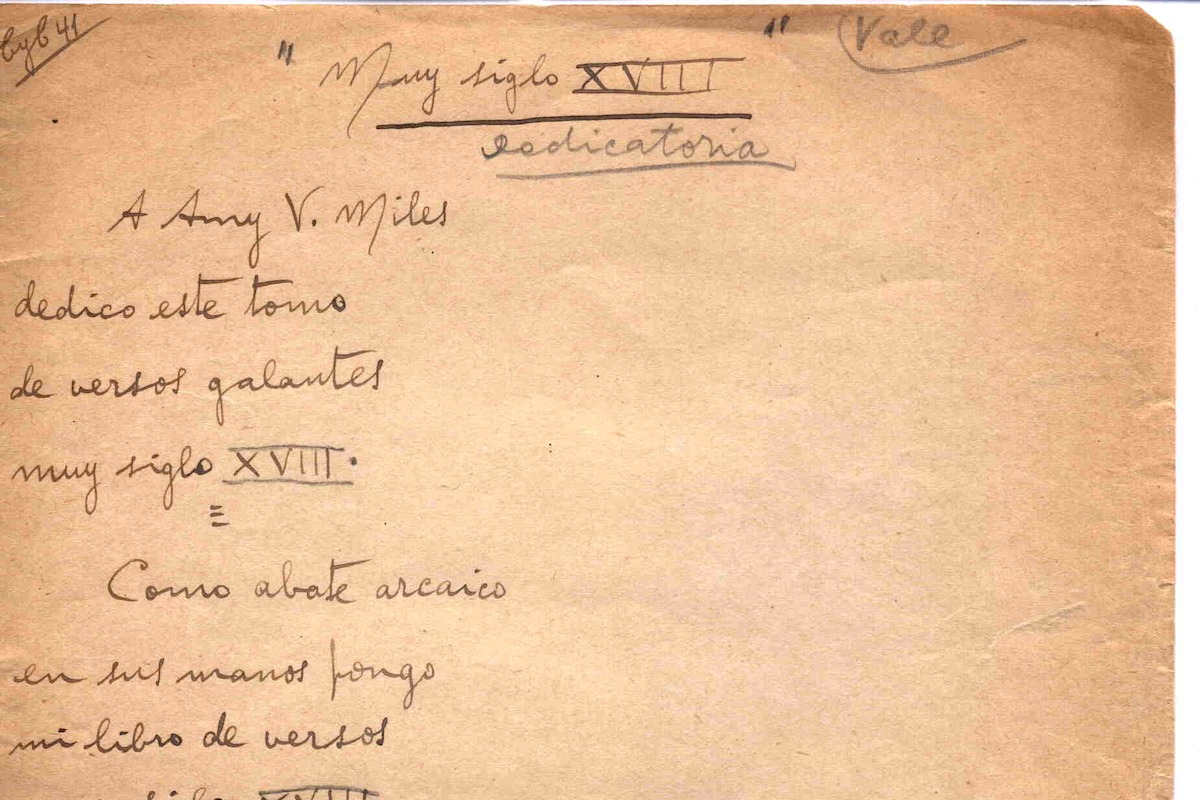 byb 41
" Muy siglo XVIII "
(Vale
dedicatoria
A Amy V. Miles
dedico este tomo
de versos galantes
muy siglo XVIII.
Como abate arcaico
en sus manos pongo
mi libro de versos
XVIII